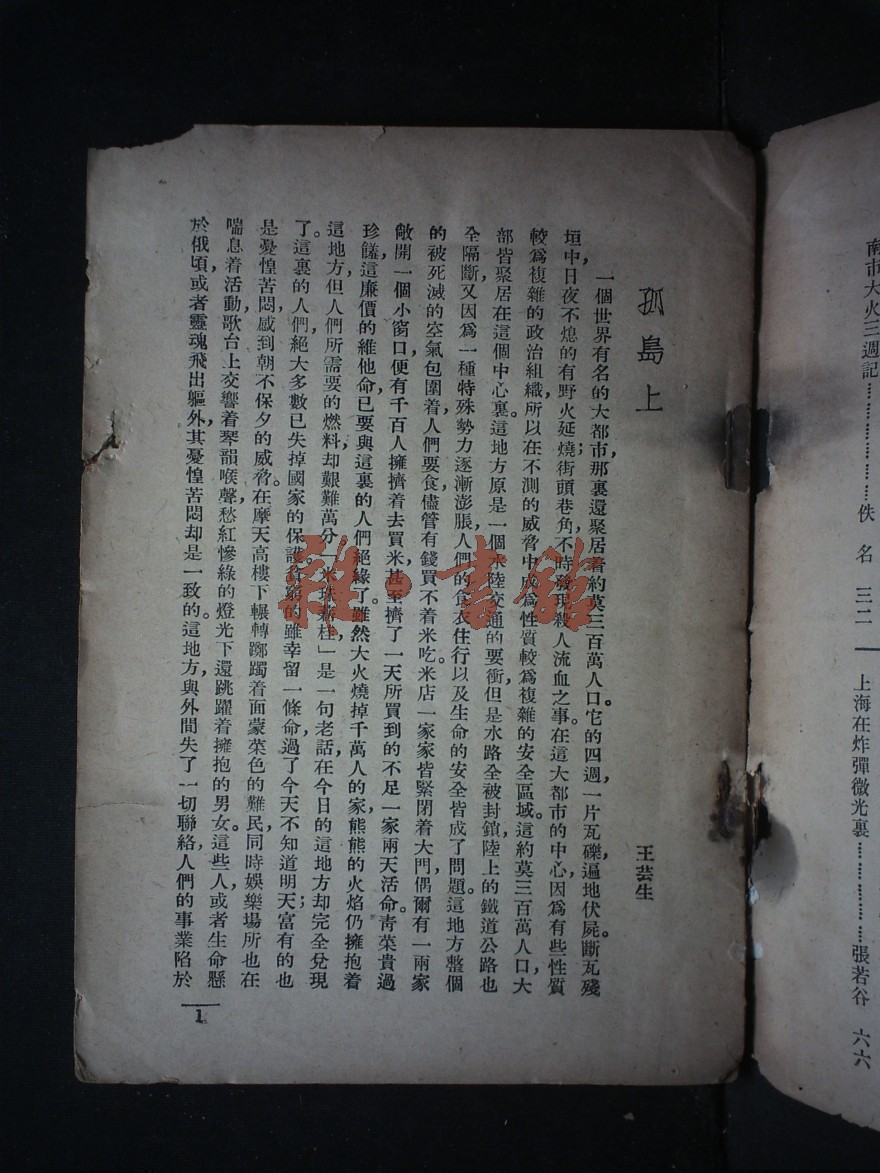 南市大火三週記………………佚名 三二
上海在炸彈微光裏………………張若谷 六六
孤島上
王芸生
一個世界有名的大都市，那裏還聚居着約莫三百萬人口。它的四週，一片瓦礫，遍地伏屍。斷瓦殘
垣中，日夜不熄的有野火延燒；街頭巷角，不時發現殺人流血之事。在這大都市的中心，因爲有些性質
較爲複雜的政治組織，所以在不測的威脅中成爲性質較爲複雜的安全區域。這約莫三百萬人口，大
部皆聚居在這個中心裏。這地方原是一個水陸交通的要衝，但是水路全被封鎖，陸上的鐵道公路也
全隔斷，又因爲一種特殊勢力逐漸澎脹，人們的食衣住行以及生命的安全皆成了問題。這地方整個
的被死滅的空氣包圍着，人們要食，儘管有錢買不着米吃。米店一家家皆緊閉着大門，偶爾有一兩家
敞開一個小窗口，便有千百人擁擠着去買米，甚至擠了一天所買到的不足一家兩天活命。青菜貴過
珍饈，這廉價的維他命已要與這裏的人們絕緣了。雖然大火燒掉千萬人的家，熊熊的火焰仍擁抱着
這地方，但人們所需要的燃料却艱難萬分。「米珠薪桂」是一句老話，在今日的這地方却完全兌現
了。這裏的人們，絕大多數已失掉國家的保護。貧窮的雖幸留一條命，過了今天不知道明天；富有的也
是憂惶苦悶，感到朝不保夕的威脅。在摩天高樓下輾轉躑躅着面蒙菜色的難民，同時娛樂場所也在
喘息着活動，歌台上交響着琴韻喉聲，愁紅慘綠的燈光下還跳躍着擁抱的男女。這些人，或者生命懸
於俄頃，或者靈魂飛出軀外，其憂惶苦悶却是一致的。這地方，與外間失了一切聯絡，人們的事業陷於
1
雜·書館